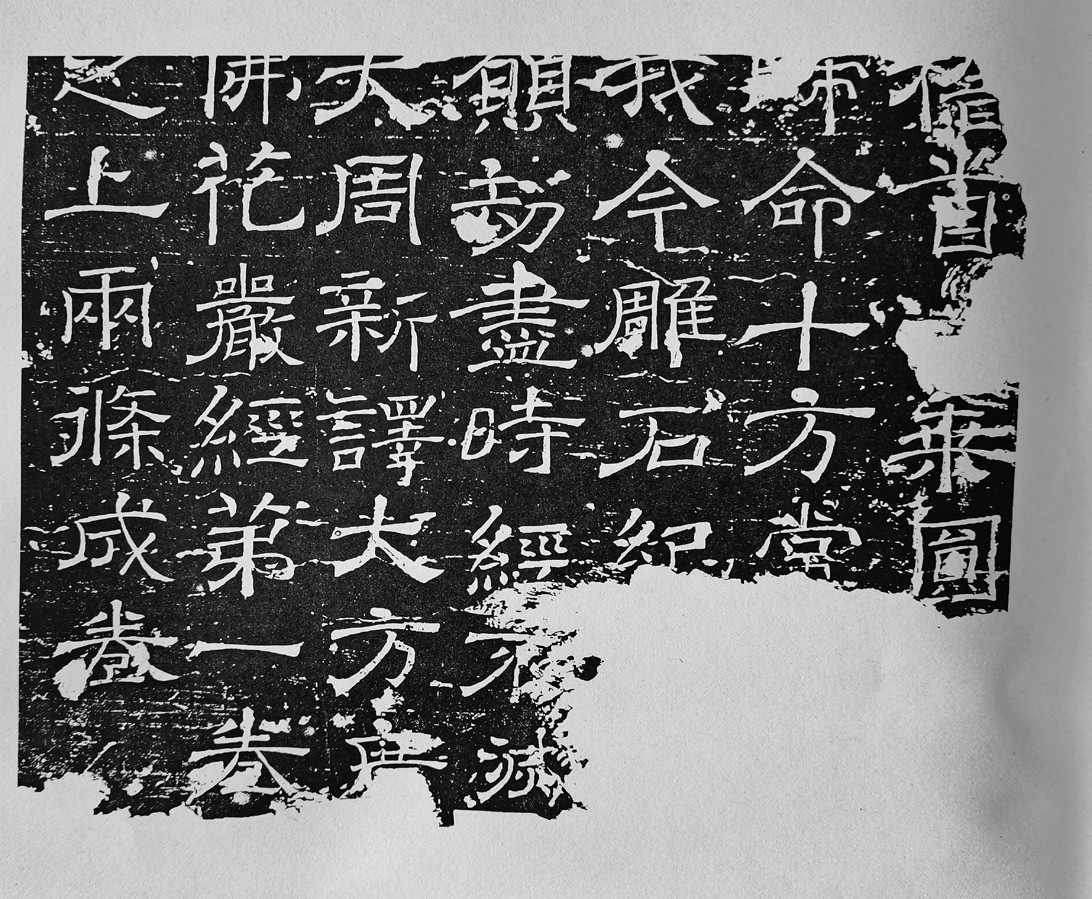 首乘圓
歸命十方常
我今雕石紀
願劫盡時經不滅
大周新譯大方廣
佛花嚴經第一卷
之上兩條成